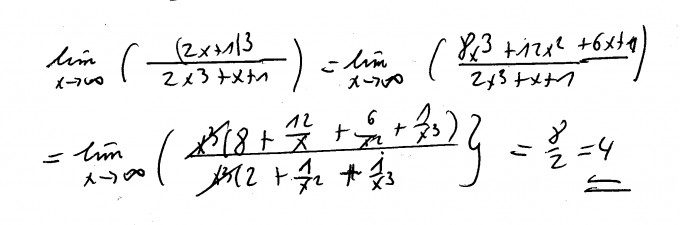 lim x→∞ ( (2x+1)3 / 2x3+x+1 ) = lim x→∞ ( 8x3 +12x2 +6x+1 / 2x3+x+1 )
= lim x→∞ ( x3(8 + 12/x + 6/x2 + 1/x3) / x3(2 + 1/x2 + 1/x3 } = 8/2 = 4